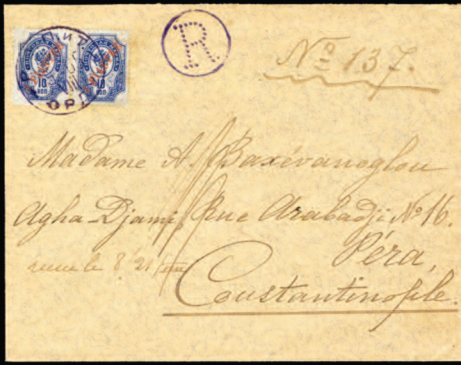 R
Nº 137.
10 10
КОП КОП
Madame A. Baxévanoglou
Agha-Djami, Rue Arabadji Nº 16.
Péra,
Constantinople.